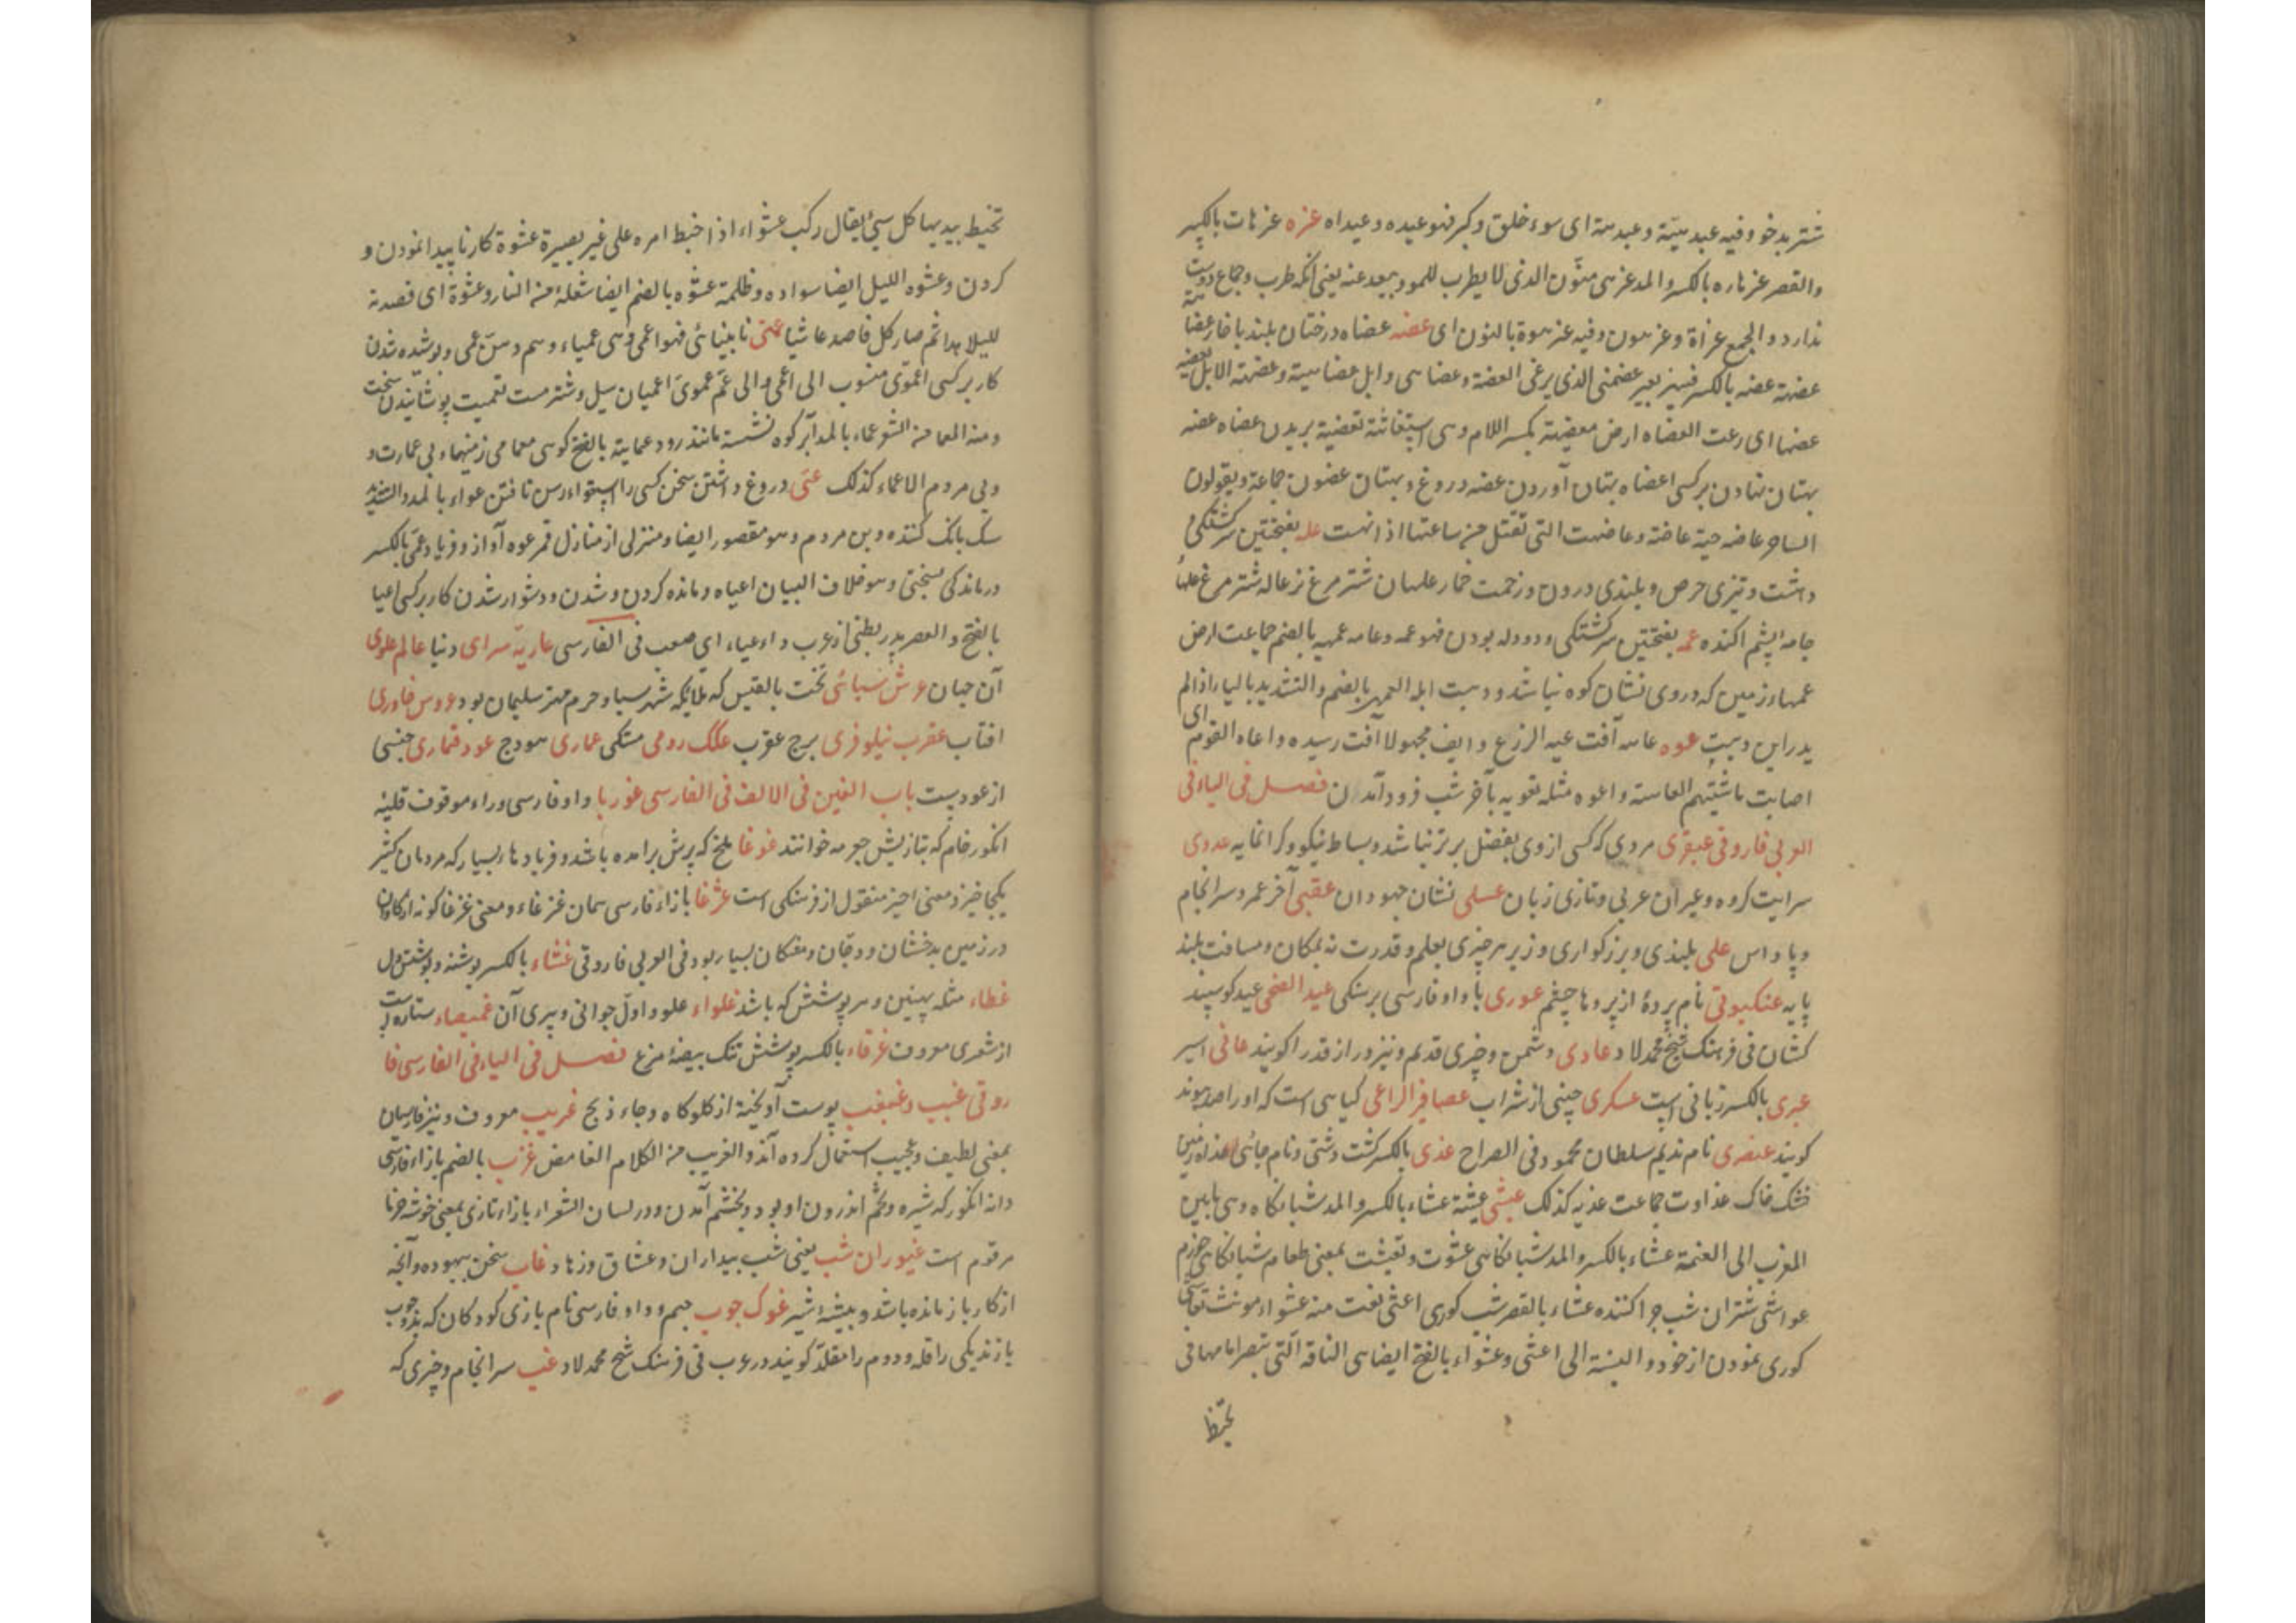 شتر بدخو و فیه عیدهیة و عیدهة ای سوء خلق و کبر فهو عیده و عیداه عزه عزهات بالکسر
والقصر عزهاره بالکسر والمد عزهی منون الذی لا یطرب للهو و یبعد عنه یعنی آنکه طرب و جماع دوست
ندارد و الجمع عزاة و عزهون و فیه عزهوة بالنون ای عضه عضاه درختان بلند با خار
عضهة عضه بالکسر بعیر عضهی الذی یرعی العضة و عضاهی و ابل عضاهیة و عضهت الابل
عضها ای رعت العضاه ارض معضهة بکسر اللام وهی تعضیة بریدن عضاه عضه
بهتان نهادن بر کسی اعضاه بهتان آوردن عضه دروغ و بهتان عضون جماعة و یقولون
الساحر عاضه حیة عاضة و عاضهت التی تقتل من ساعتها اذا نهشت عله بفتحتین سرگشتگی
داشت و تیزی حرص و بلندی درون و زحمت خمار علهان شتر مرغ نر عاله شتر مرغ علها
جامه پشم اکنده عمه بفتحتین سرگشتگی و دودله بودن فهو عمه و عامه عمهیه بالضم جماعت ارض
عمهاء زمین که در وی نشان کوه نباشد و ذهبت ابله العمهی بالضم والتشدید بالیا را اذا لم
یدر این ذهبت عوه عاهه آفت عیه الزرع و ایف مجهولا آفت رسیده و اعاه القوم ای
اصابت ماشیتهم العاهة و اعوه مثله تعویه بآخر شب فرود آمدن فصل فی الیاء فی
العربی فاروقی عبقری مردی که کسی از وی بفضل برتر نباشد و بساط نیکو و کرانمایه عدوی
سرایت کروه و عبرانی عربی و تازی زبان عسلی نشان جهودان عقبی آخر عمر و سرانجام
و پاداس علی بلندی و بزرکواری و زیر هر چیزی بعلم و قدرت نه بمکان و مسافت بلند
پایه عنکبوتی نام پردۀ از پردها چشم عوری با واو فارسی برهنکی عید الضحی عید کوسپند
کشان فی فرهنک شیخ محمد لاد عادی دشمن و چیزی قدیم و نیز دراز قد را کویند عانی اسیر
عبری بالکسر زبانی است عسکری جنسی از شراب عصافیر الراعی کیاهی است که او را
کویند عنصری نام ندیم سلطان محمود فی الصراح عذی بالکسر کشت دشتی و نام جائی
خشک خاک عذاوت جماعت عذیه کذلک عشی عشیة عشاء بالکسر والمد شبانکاه وهی مابین
المغرب الی العتمة عشاء بالکسر والمد شبانکاهی عشوت و تعشیت بمعنی طعام شبانکاهی خوردم
عواشی شتران شب چرا کننده عشاء بالقصر شب کوری اعشی نعت منه عشواء مونث
کوری نمودن از خود و النسبة الی اعشی و عشواء بالفتح ایضا هی الناقة التی تبصر امامها فی
تخبط
تخبط بیدیها کل شیء یقال رکب عشواء اذا خبط امره علی غیر بصیرة عشوة کار ناپیدا نمودن و
کردن و عشوه اللیل ایضا سواده و ظلمته عشوه بالضم ایضا شعلة من النار و عشوة ای قصدته
لیلا هذا ثم صار کل قاصد عاشیا عمی نابینائی فهو اعمی وهی عمیاء و هم عمی و پوشیده شدن
کار بر کسی اعموی منسوب الی اعمی والی عم عموی اعمیان سیل و شتر مست تعمیت پوشانیدن سخن
و منه المعما من الشعر عماء بالمد ابر کوه نشسته مانند دود عمایة بالفتح کوهی معامی زمینهاء بی عمارت و
بی مردم الاعماء کذلک عنی دروغ داشتن سخن کسی را رسن تافتن عواء بالمد والتشدید
سک بانک کننده و بن مردم و هو مقصور ایضا و منزلی از منازل قمر عوه آواز و فریاد عی بالکسر
درماندکی بسختی و هو خلاف البیان اعیاء مانده کردن و شدن و دشوار شدن کار بر کسی اعیا
بالفتح والقصر پدر بطنی از عرب داء عیاء ای صعب فی الفارسی عاریة سرای دنیا عالم علوی
آن جهان عرش سبائی تخت بلقیس که ملکه شهر سبا و حرم مهتر سلیمان بود عروس خاوری
افتاب عقرب نیلوفری برج عقرب علک رومی مستکی عماری هودج عود قماری جنسی
از عود است باب الغین فی الالف فی الفارسی غوربا واو فارسی و راء موقوف قلیه
انکور خام که بتازیش خوانند غوغا ملخ که پرش برآمده باشد و فریاد هاء بسیار که مردمان کثیر
یکجا خیزد و معنی اخیر منقول از فرهنکی است غژغا با زاء فارسی همان غزغاء و معنی غزغا کونه از کاوان
در زمین بدخشان و دقان و مفکان بسیار بود فی العربی فاروقی غشاء بالکسر پوشنه و پوشش دل
غطاء مثله پسین و سرپوشش که باشد غلواء علو و اول جوانی و پیری آن غمیصاء ستاره است
از شعری معروف غرقاء بالکسر پوشش تنک بیضۀ مرغ فصل فی الیاء فی الفارسی فا
روقی غبب و غبغب پوست آویخته از کلوکاه و جاء ذبح غریب معروف و نیز فارسیان
بمعنی لطیف و عجیب استعمال کرده اند و الغریب من الکلام الغامض غژب بالضم با زاء فارسی
دانه انکور که شیره و تخم اندرون او بود و بخشم آمدن و در لسان الشعراء با زاء تازی بمعنی خوشه خرما
مرقوم است غیوران شب یعنی شب بیداران و عشاق و زهاد غاب سخن بیهوده و آنچه
از کار باز مانده باشد و بیشۀ شیر غوک چوب جیم و واو فارسی نام بازی کودکان که بدو چوب
بازند یکی را قله و دوم را مقله کویند در عرب فی فرهنک شیخ محمد لاد غب سرانجام و چیزی که